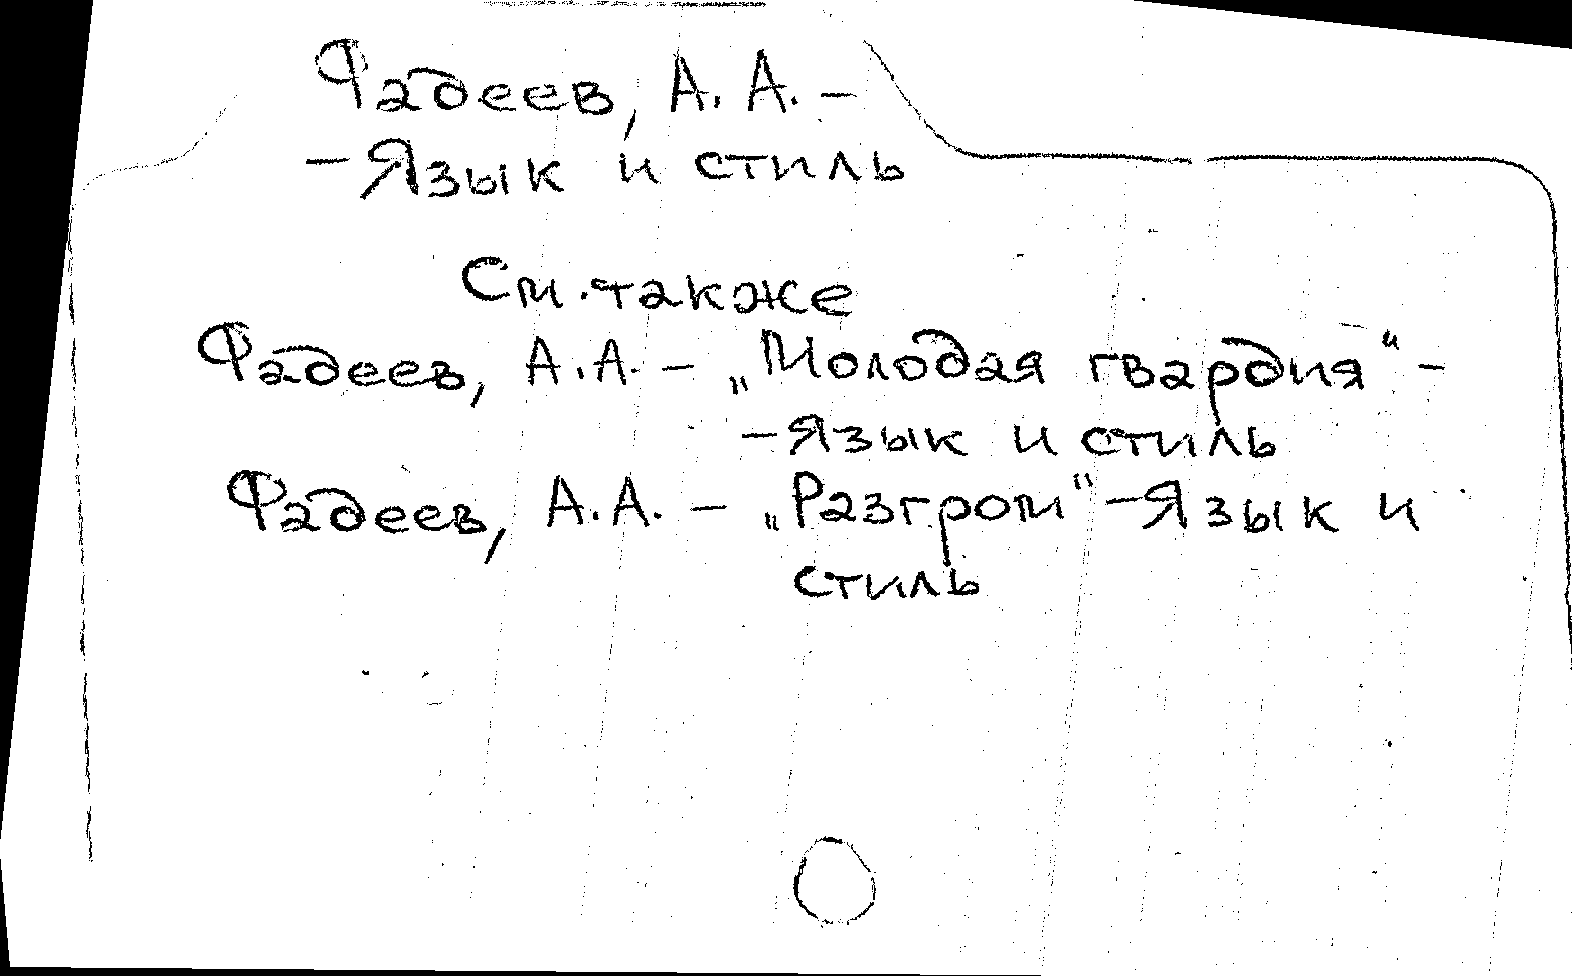 Фадеев, А. А. –
– Язык и стиль
См. также
Фадеев, А. А. – „Молодая гвардия“ –
– Язык и стиль
Фадеев, А. А. – „Разгром“ – Язык и
стиль